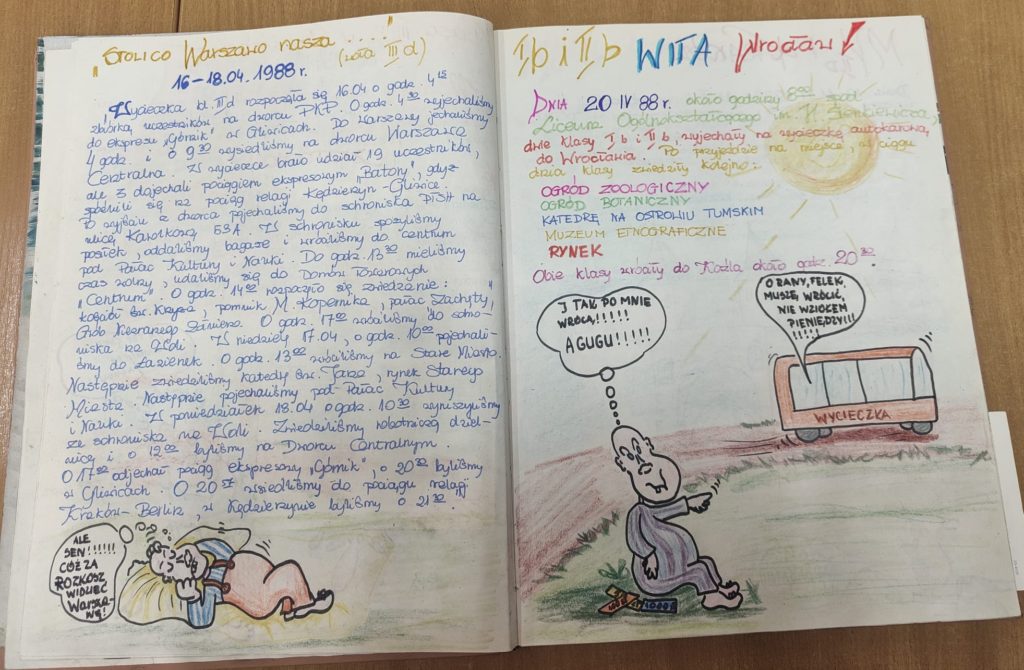 „Stolico Warszawo nasza ....”
(woła III d)
16-18.04. 1988 r.
Wycieczka kl. III d rozpoczęła się 16.04 o godz. 4 15
zbiórką uczestników na dworcu PKP. O godz. 4 30 wyjechaliśmy
do ekspresu „Górnik” w Gliwicach. Do Warszawy jechaliśmy
4 godz. i o 9 30 wysiedliśmy na dworcu Warszawa
Centralna. W wycieczce brało udział 19 uczestników,
ale 3 dojechali pociągiem ekspresowym „Batory”, gdyż
spóźnili się na pociąg relacji Kędzierzyn-Gliwice.
Po wyjściu z dworca pojechaliśmy do schroniska PTSM na
ulicę Karolkową 53A. W schronisku spożyliśmy
posiłek, oddaliśmy bagaże i wróciliśmy do centrum
pod Pałac Kultury i Nauki. Do godz. 13 30 mieliśmy
czas wolny, udaliśmy się do Domów Towarowych
„Centrum”. O godz. 14 00 rozpoczęło się zwiedzanie:
kościół św. Krzyża, pomnik M. Kopernika, pałac Zachęty,
Grób Nieznanego Żołnierza. O godz. 17 00 wróciliśmy do schro-
niska na Woli. W niedzielę 17.04, o godz. 10 00 pojechali-
śmy do Łazienek. O godz. 13 00 wróciliśmy na Stare Miasto.
Następnie zwiedziliśmy katedrę św. Jana, rynek Starego
Miasta. Następnie pojechaliśmy pod Pałac Kultury
i Nauki. W poniedziałek 18.04 o godz. 10 30 wyruszyliśmy
ze schroniska na Woli. Zwiedziliśmy robotniczą dziel-
nicę i o 12 00 byliśmy na Dworcu Centralnym.
O 17 00 odjechał pociąg ekspresowy „Górnik”, o 20 30 byliśmy
w Gliwicach. O 20 57 wsiedliśmy do pociągu relacji
Kraków-Berlin, w Kędzierzynie byliśmy o 21 30.
ALE
SEN!!!!!!
CÓŻ ZA
ROZKOSZ
WIDZIEĆ
WARSZA-
WĘ!
Ib i IIb WITA Wrocław!
DNIA 20 IV 88 r. około godziny 8 00 spod
Liceum Ogólnokształcącego im. H. Sienkiewicza,
dwie klasy I b i II b, wyjechały na wycieczkę autokarową
do Wrocławia. Po przyjeździe na miejsce, w ciągu
dnia, klasy zwiedziły kolejno:
OGRÓD ZOOLOGICZNY
OGRÓD BOTANICZNY
KATEDRĘ NA OSTROWIU TUMSKIM
MUZEUM ETNOGRAFICZNE
RYNEK
Obie klasy wróciły do Koźla około godz. 20 30.
I TAK, PO MNIE
WRÓCĄ!!!!!
A GUGU!!!!!
O RANY, FELEK,
MUSZĘ WRÓCIĆ,
NIE WZIOŁEM
PIENIĘDZY!!!
!!!!!
WYCIECZKA